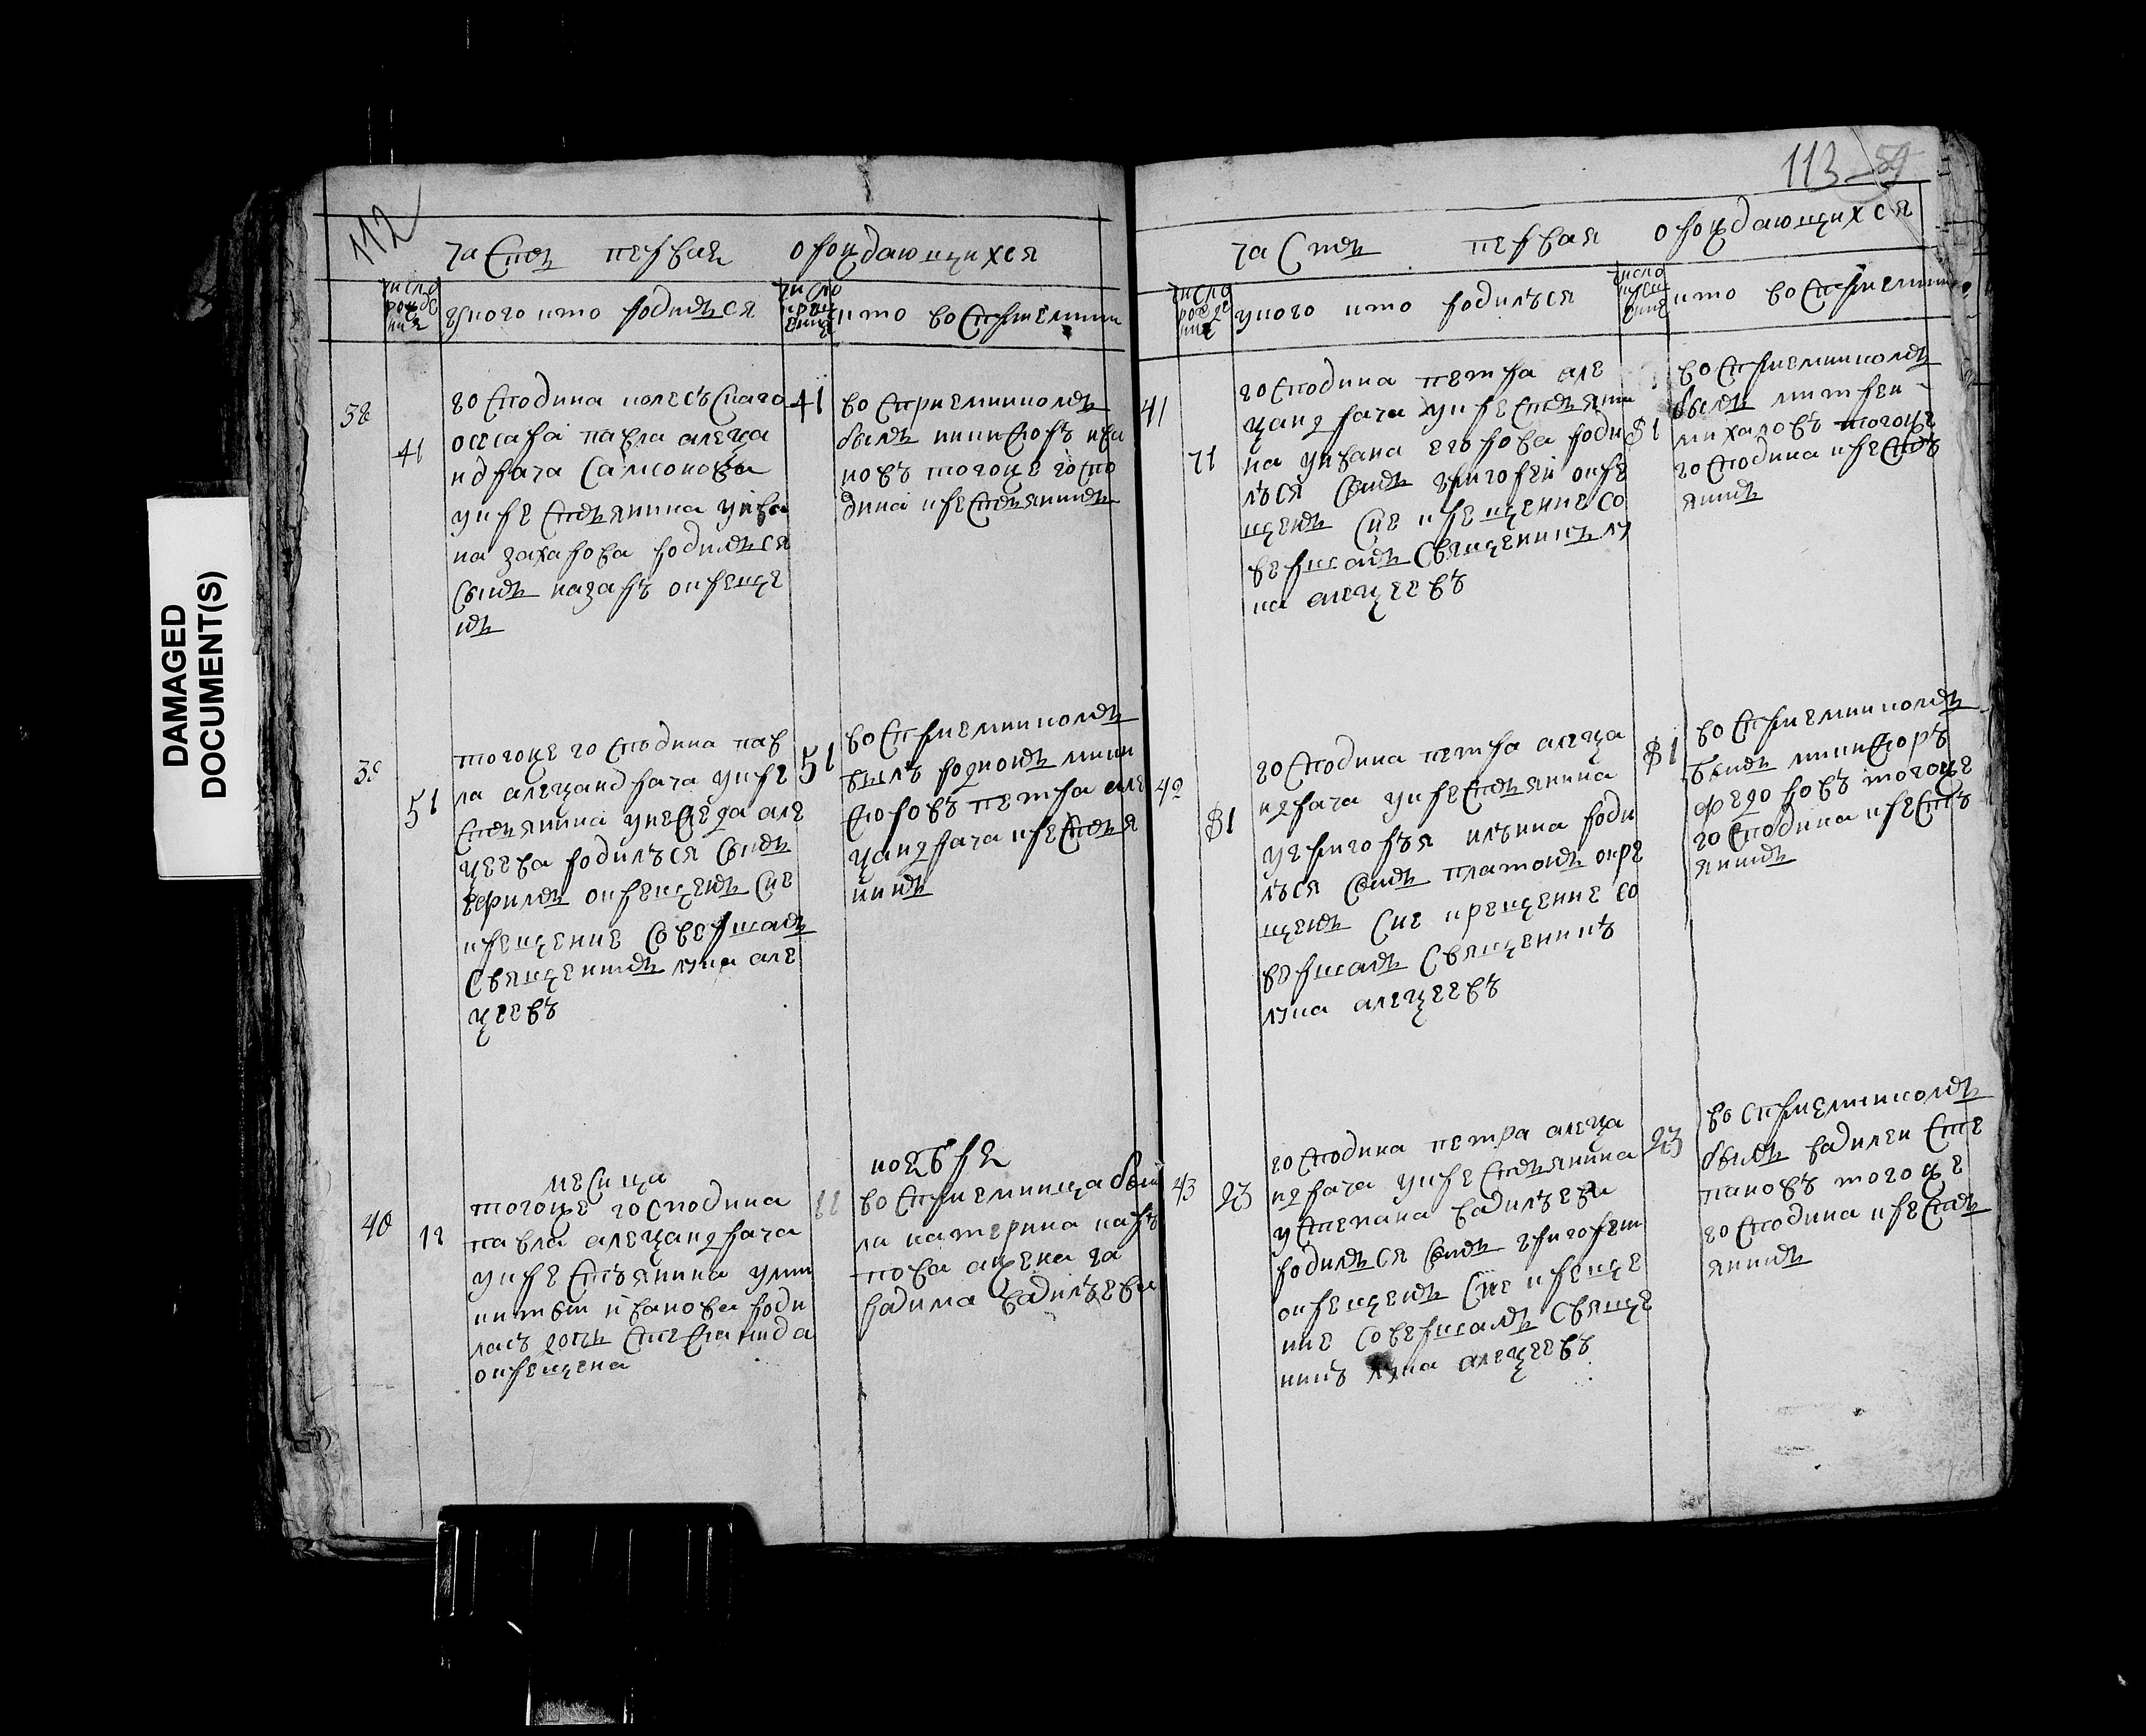 DAMAGED
DOCUMENT(S)
112
часть первая о рождающихся
число рожде ния
у кого кто родился
число креще ния
кто восприемники
38
41
господина колесъскаго
ассесара павла алекса
ндрача самсонова
укрестьянина уива
на захарова родился
сынъ назаръ окреще
нъ
41
восприемникомъ
былъ никифоръ ива
новъ тогоже госпо
дина крестьянинъ
39
51
тогоже господина пав
ла александрача укре
стьянина але
ксеева родилъся сынъ
ефимъ окрещенъ сие
крещение совершалъ
священникъ лука але
ксеевъ
51
восприемникомъ
былъ родионъ ники
форовъ петра але
ксандрача крестья
нинъ
месица ноебре
40
12
тогоже господина
павла александрача
укрестъянина уни
киты иванова роди
лась дочь степанида
окрещена
12
восприемница бы
ла катерина кар
пова ажена
вадима вадилъева
113
59
часть первая о рождающихся
число рожде ния
укого кто родилъся
число креще ния
кто восприемники
41
71
господина петра але
ксандрача укрестьяни
на уивана егорова роди
лъся сынъ григорей окре
щенъ сие крещение со
вершалъ священникъ лу
ка алексеевъ
81
восприемникомъ
былъ митрей
михаловъ тогоже
господина кресть
янинъ
42
81
господина петра алекса
ндрача укрестьянина
угригоръя илъина роди
лъся сынъ платонъ окре
щенъ сие крещение со
вершалъ священникъ
лука алексеевъ
81
восприемникомъ
былъ никифоръ
федоровъ тогоже
господина кресть
янинъ
43
23
господина петра алекса
ндрача укрестьянина
устепана вадилъева
родился сынъ григорей
окрещенъ сие креще
ние совершалъ свяще
никъ лука алексеевъ
23
восприемникомъ
былъ вадилей сте
пановъ тогоже
господина кресть
янинъ